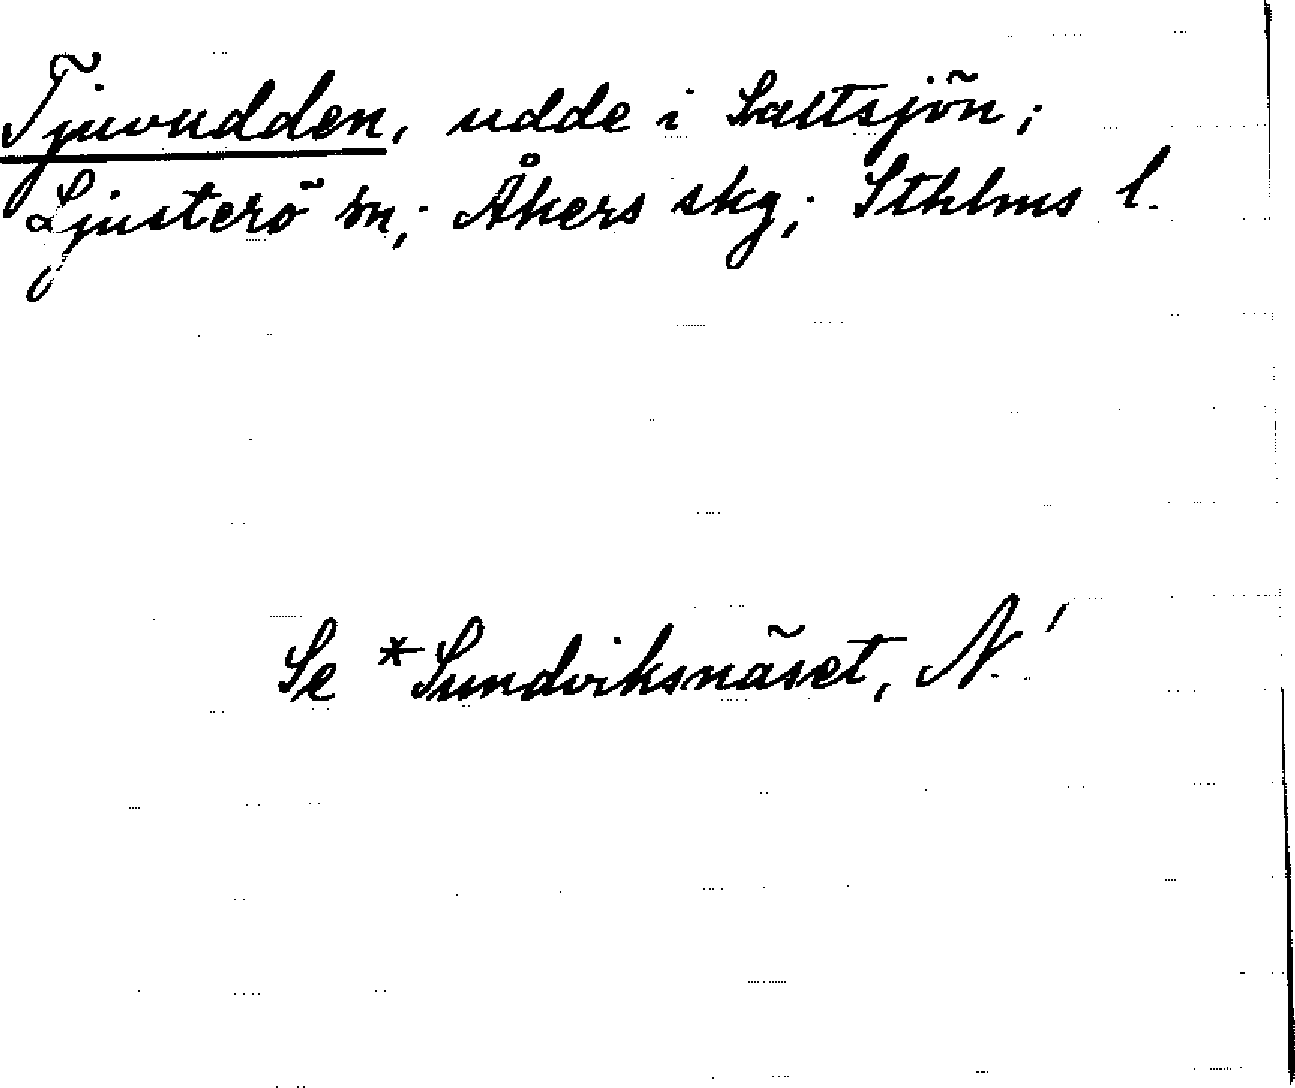 Tjuvudden, udde i Saltsjön;
Ljusterö sn; Åkers skg; Sthlms l.
Se *Sundviksnäset, N.